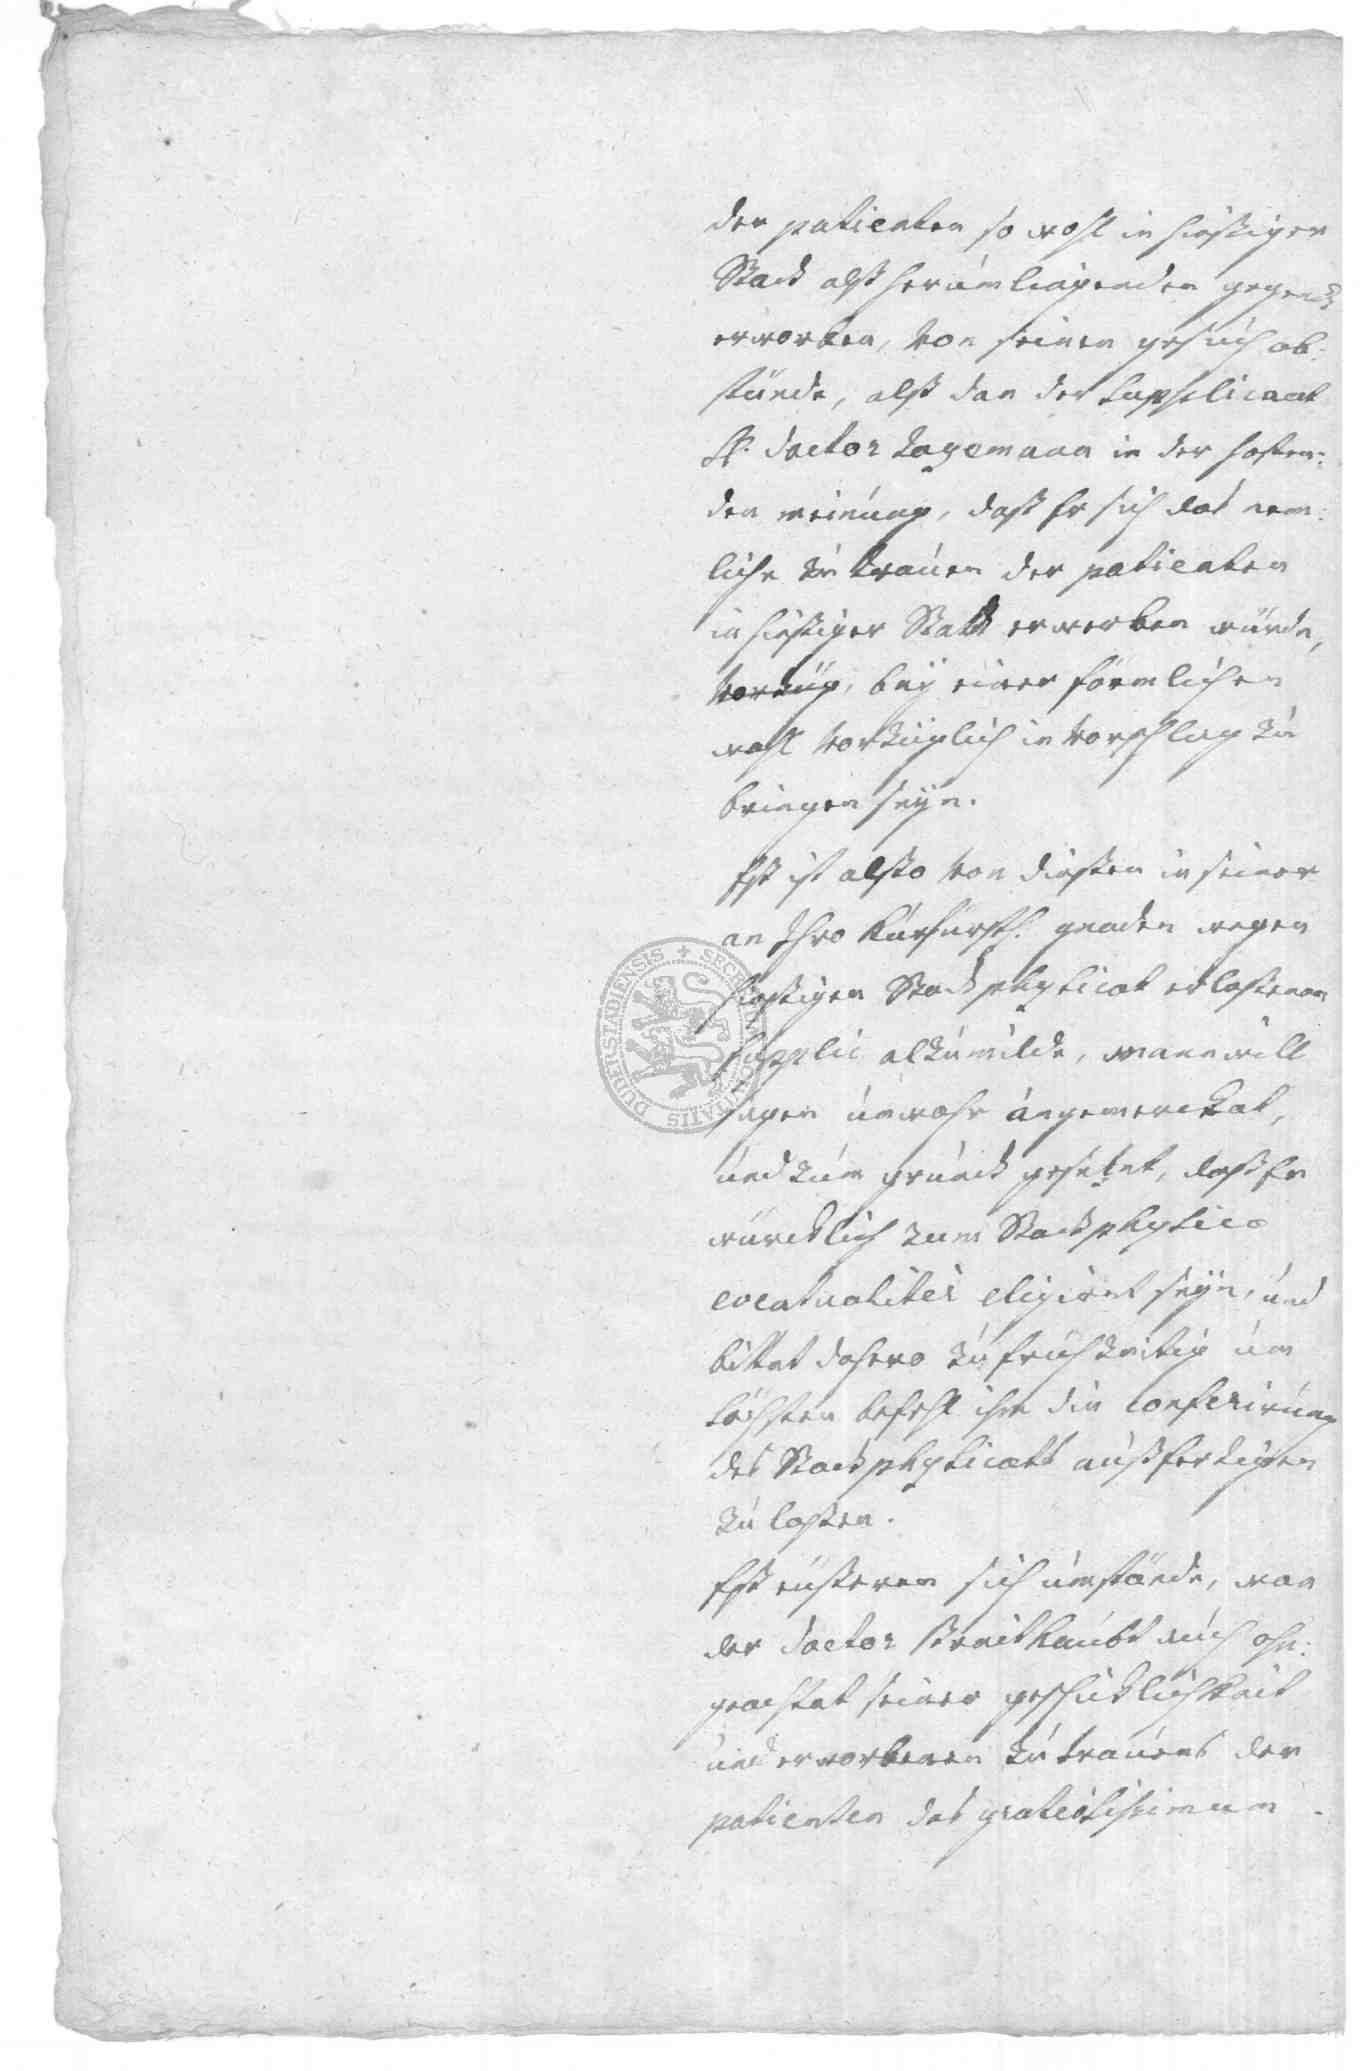 der patienten so wohl in hießiger
Stadt alß herumliegenden gegend
erworben, von seinem gesuch ab:
stünde, alß dan der supplicant
H. doctor Hagemann in der hoffen:
den meinung, daß Er sich das nem:
liche zu trauen der patienten
in hießiger Stadt erwerben würde,
bey einer förmlichen
wahl vorzüglich in vorschlag zu
bringen seyn.
Eß ist alßo von dießem in seiner
an Ihro Kurfürstl. gnaden wegen
hießigen Stadt physicat erlaßenen
supplic alzumilde, mann will
sagen unwahr angemercket,
und zum grund gesetzet, daß Er
würcklich zum Stadtphysico
eventualiter eligiret seyn, und
bittet dahero zu frühzeitig um
höchsten befehl ihm die conferirung
des Stadtphysicats außfertigen
zu laßen.
Eß eußeren sich umstände, wan
der doctor Streithaubt auch ohn:
geachtet seiner geschicklichkeit
und erworbenen zu trauens der
patienten das gratiosissimum
DUDERSTADIENSIS + SECRETUM CIVITATIS